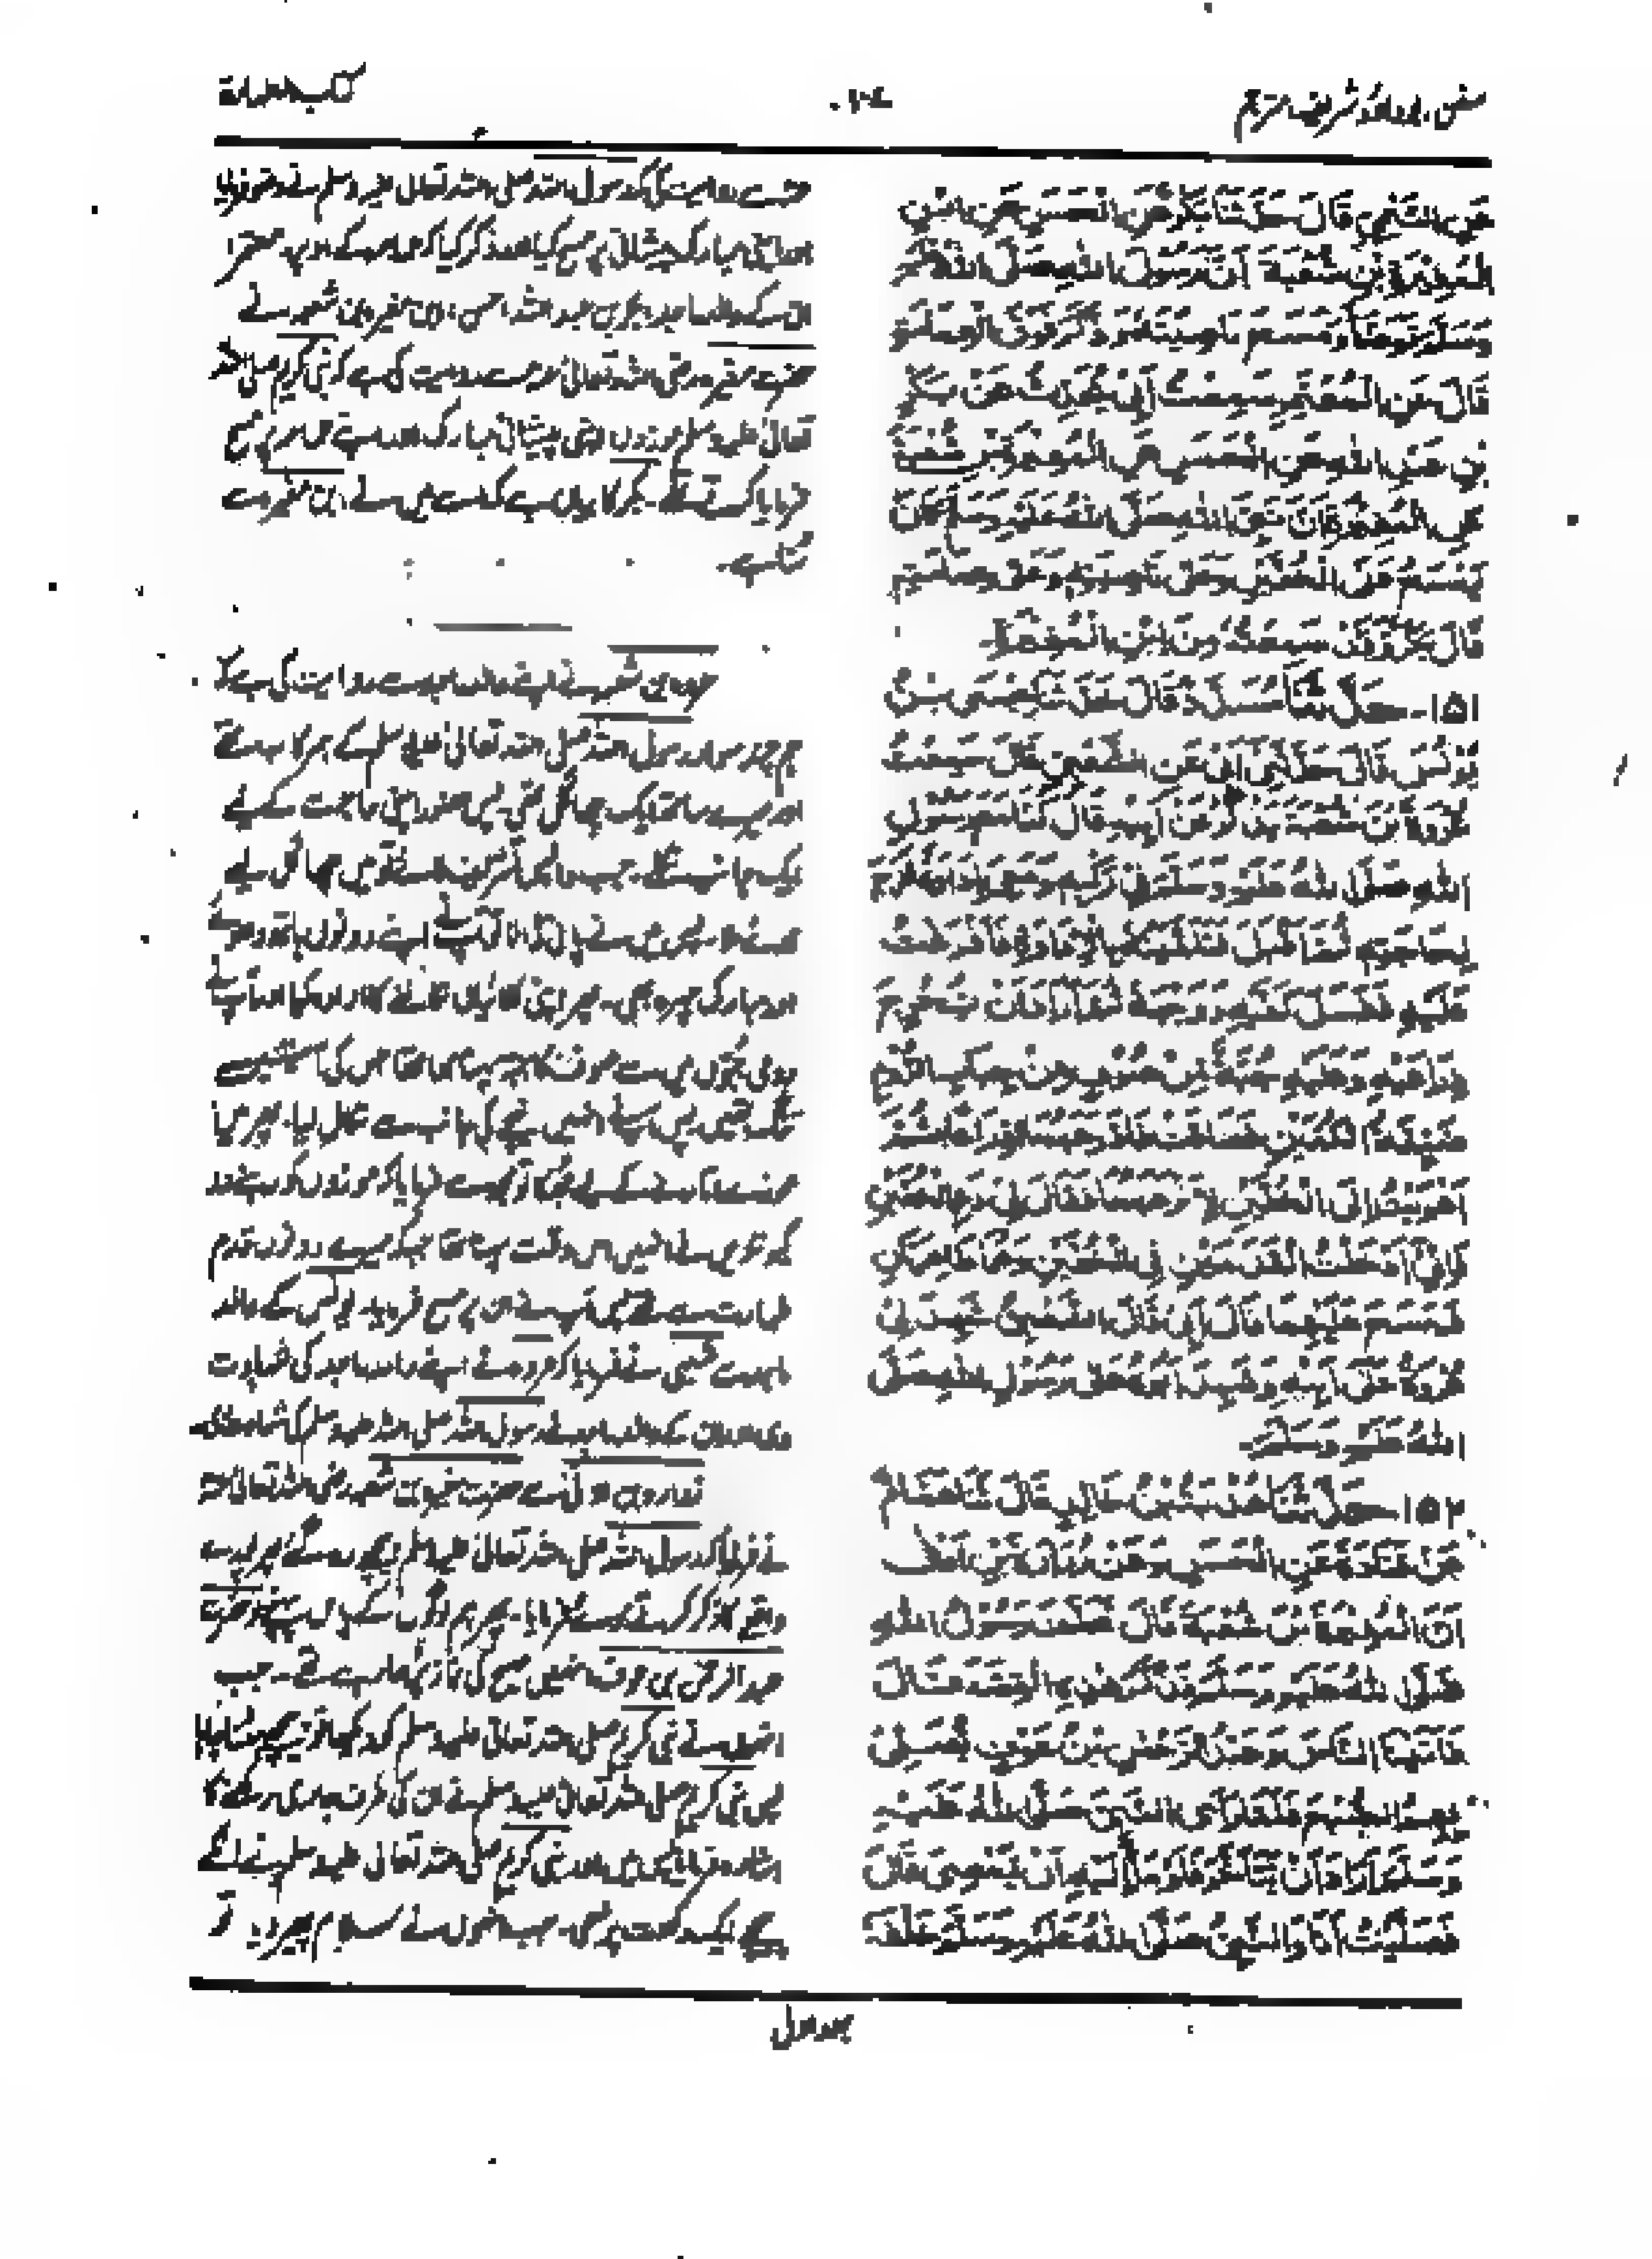 سنن ابوداؤد شریف مترجم
۱۰۴
کتاب الطہارۃ
عَنِ التَّيْمِيِّ قَالَ حَدَّثَنَا بَكْرٌ عَنِ الْحَسَنِ عَنِ ابْنِ
الْمُغِيْرَةِ بْنِ شُعْبَةَ اَنَّ رَسُوْلَ اللهِ صَلَّى اللهُ عَلَيْهِ
وَسَلَّمَ تَوَضَّأَ وَمَسَحَ نَاصِيَتَهُ وَذَكَرَ فَوْقَ الْعِمَامَةِ
قَالَ عَنِ الْمُعْتَمِرِ سَمِعْتُ اَبِيْ يُحَدِّثُ عَنْ بَكْرِ
بْنِ عَبْدِ اللهِ عَنِ الْحَسَنِ عَنِ ابْنِ الْمُغِيْرَةِ بْنِ شُعْبَةَ
عَنِ الْمُغِيْرَةِ اَنَّ نَبِيَّ اللهِ صَلَّى اللهُ عَلَيْهِ وَسَلَّمَ كَانَ
يَمْسَحُ عَلَى الْخُفَّيْنِ وَعَلٰى نَاصِيَتِهِ وَعَلٰى عِمَامَتِهِ
قَالَ بَكْرٌ وَقَدْ سَمِعْتُهُ مِنَ ابْنِ الْمُغِيْرَةِ
۱۵۱- حَدَّثَنَا مُسَدَّدٌ قَالَ حَدَّثَنَا عِيْسَى بْنُ
يُوْنُسَ قَالَ حَدَّثَنِيْ اَبِيْ عَنِ الشَّعْبِيِّ قَالَ سَمِعْتُ
عُرْوَةَ بْنَ الْمُغِيْرَةِ بْنِ شُعْبَةَ يَذْكُرُ عَنْ اَبِيْهِ قَالَ كُنَّا مَعَ رَسُوْلِ
اللهِ صَلَّى اللهُ عَلَيْهِ وَسَلَّمَ فِيْ رَكْبِهِ وَمَعِيَ اِدَاوَةٌ فَخَرَجَ
لِحَاجَتِهِ ثُمَّ اَقْبَلَ فَتَلَقَّيْتُهُ بِالْاِدَاوَةِ فَاَفْرَغْتُ
عَلَيْهِ فَغَسَلَ كَفَّيْهِ وَوَجْهَهُ ثُمَّ اَرَادَ اَنْ يُخْرِجَ
ذِرَاعَيْهِ وَعَلَيْهِ جُبَّةٌ مِنْ صُوْفٍ مِنْ جِبَابِ الرُّوْمِ
ضَيِّقَةُ الْكُمَّيْنِ فَضَاقَتْ فَادَّرَعَهُمَا ادِّرَاعًا ثُمَّ
اَهْوَيْتُ اِلَى الْخُفَّيْنِ لِاَنْزِعَهُمَا فَقَالَ لِيْ دَعِ الْخُفَّيْنِ
فَاِنِّيْ اَدْخَلْتُ الْقَدَمَيْنِ فِي الْخُفَّيْنِ وَهُمَا طَاهِرَتَانِ
فَمَسَحَ عَلَيْهِمَا قَالَ اَبِيْ قَالَ الشَّعْبِيُّ شَهِدَ لِيْ
عُرْوَةُ عَلٰى اَبِيْهِ وَشَهِدَ اَبُوْهُ عَلٰى رَسُوْلِ اللهِ صَلَّى
اللهُ عَلَيْهِ وَسَلَّمَ
۱۵۲- حَدَّثَنَا هُدْبَةُ بْنُ خَالِدٍ قَالَ ثَنَا هَمَّامٌ
عَنْ قَتَادَةَ عَنِ الْحَسَنِ وَعَنْ زُرَارَةَ بْنِ اَوْفٰى
اَنَّ الْمُغِيْرَةَ بْنَ شُعْبَةَ قَالَ تَخَلَّفَ رَسُوْلُ اللهِ
صَلَّى اللهُ عَلَيْهِ وَسَلَّمَ فَذَكَرَ هٰذِهِ الْقِصَّةَ قَالَ
فَاَتَيْنَا النَّاسَ وَعَبْدُ الرَّحْمٰنِ بْنُ عَوْفٍ يُصَلِّيْ
بِهِمُ الصُّبْحَ فَلَمَّا رَاَى النَّبِيَّ صَلَّى اللهُ عَلَيْهِ
وَسَلَّمَ اَرَادَ اَنْ يَتَاَخَّرَ فَاَوْمَأَ اِلَيْهِ اَنْ يَمْضِيَ قَالَ
فَصَلَّيْتُ اَنَا وَالنَّبِيُّ صَلَّى اللهُ عَلَيْهِ وَسَلَّمَ خَلْفَهُ
سے روایت کی کہ رسول اللہ صلی اللہ تعالیٰ علیہ وسلم نے وضو فرمایا
اور اپنی مبارک پیشانی پر مسح کیا اور ذکر کیا کہ عمامے کے اوپر۔ معتمر
ان کے والد ماجد، بکر بن عبد اللہ، حسن، ابن مغیرہ بن شعبہ نے
حضرت مغیرہ رضی اللہ تعالیٰ عنہ سے روایت کی ہے کہ نبی کریم صلی اللہ
تعالیٰ علیہ وسلم موزوں اپنی پیشانی مبارک اور اپنے عمامہ پر مسح
فرمایا کرتے تھے۔ بکر کا بیان ہے کہ اسے میں نے ابن مغیرہ سے
سنا ہے۔
عروہ بن مغیرہ نے اپنے والد ماجد سے روایت کی ہے کہ
ہم چند سوار رسول اللہ صلی اللہ تعالیٰ علیہ وسلم کے ہمراہ تھے
اور میرے ساتھ ایک چھاگل تھی۔ پس حضور اپنی حاجت کے لیے
ایک جانب نکلے۔ جب واپس
اور مبارک چہرہ دھویا۔ پھر اپنی کلائیاں نکالنے کا ارادہ کیا اور آپ
رومی جبوں میں سے صوف کا جبہ پہنا ہوا تھا جس کی آستینیں
تنگ تھیں پس آپ نے انہیں نیچے کی جانب سے نکال لیا۔ پھر میں
موزے اتارنے کے لیے جھکا تو آپ نے فرمایا کہ موزوں کو رہنے دو
کیونکہ میں نے انہیں اس وقت پہنا تھا جبکہ میرے دونوں قدم
طہارت سے تھے پس آپ نے ان پر مسح فرمایا۔ یونس کے والد
ماجد سے شعبی نے فرمایا کہ عروہ نے اپنے والد ماجد کی شہادت
دی اور ان کے والد ماجد نے رسول اللہ صلی اللہ علیہ وسلم کی شہادت دی
زرارہ بن اوفیٰ سے حضرت مغیرہ بن شعبہ رضی اللہ تعالیٰ عنہ
نے فرمایا کہ رسول اللہ صلی اللہ تعالیٰ علیہ وسلم پیچھے رہ گئے پھر اس
واقعے کا ذکر کرتے ہوئے فرمایا۔ پھر ہم لوگوں کے پاس آئے تو حضرت
عبد الرحمٰن بن عوف انہیں صبح کی نماز پڑھا رہے تھے۔ جب
انہوں نے نبی کریم صلی اللہ تعالیٰ علیہ وسلم کو دیکھا تو پیچھے ہٹنا چاہا
پس نبی کریم صلی اللہ تعالیٰ علیہ وسلم نے ان کی طرف جاری رکھنے کا
اشارہ فرمایا پس میں اور نبی کریم صلی اللہ تعالیٰ علیہ وسلم نے ان کے
پیچھے ایک رکعت پڑھی۔ جب انہوں نے سلام پھیر دیا تو
جلد اول